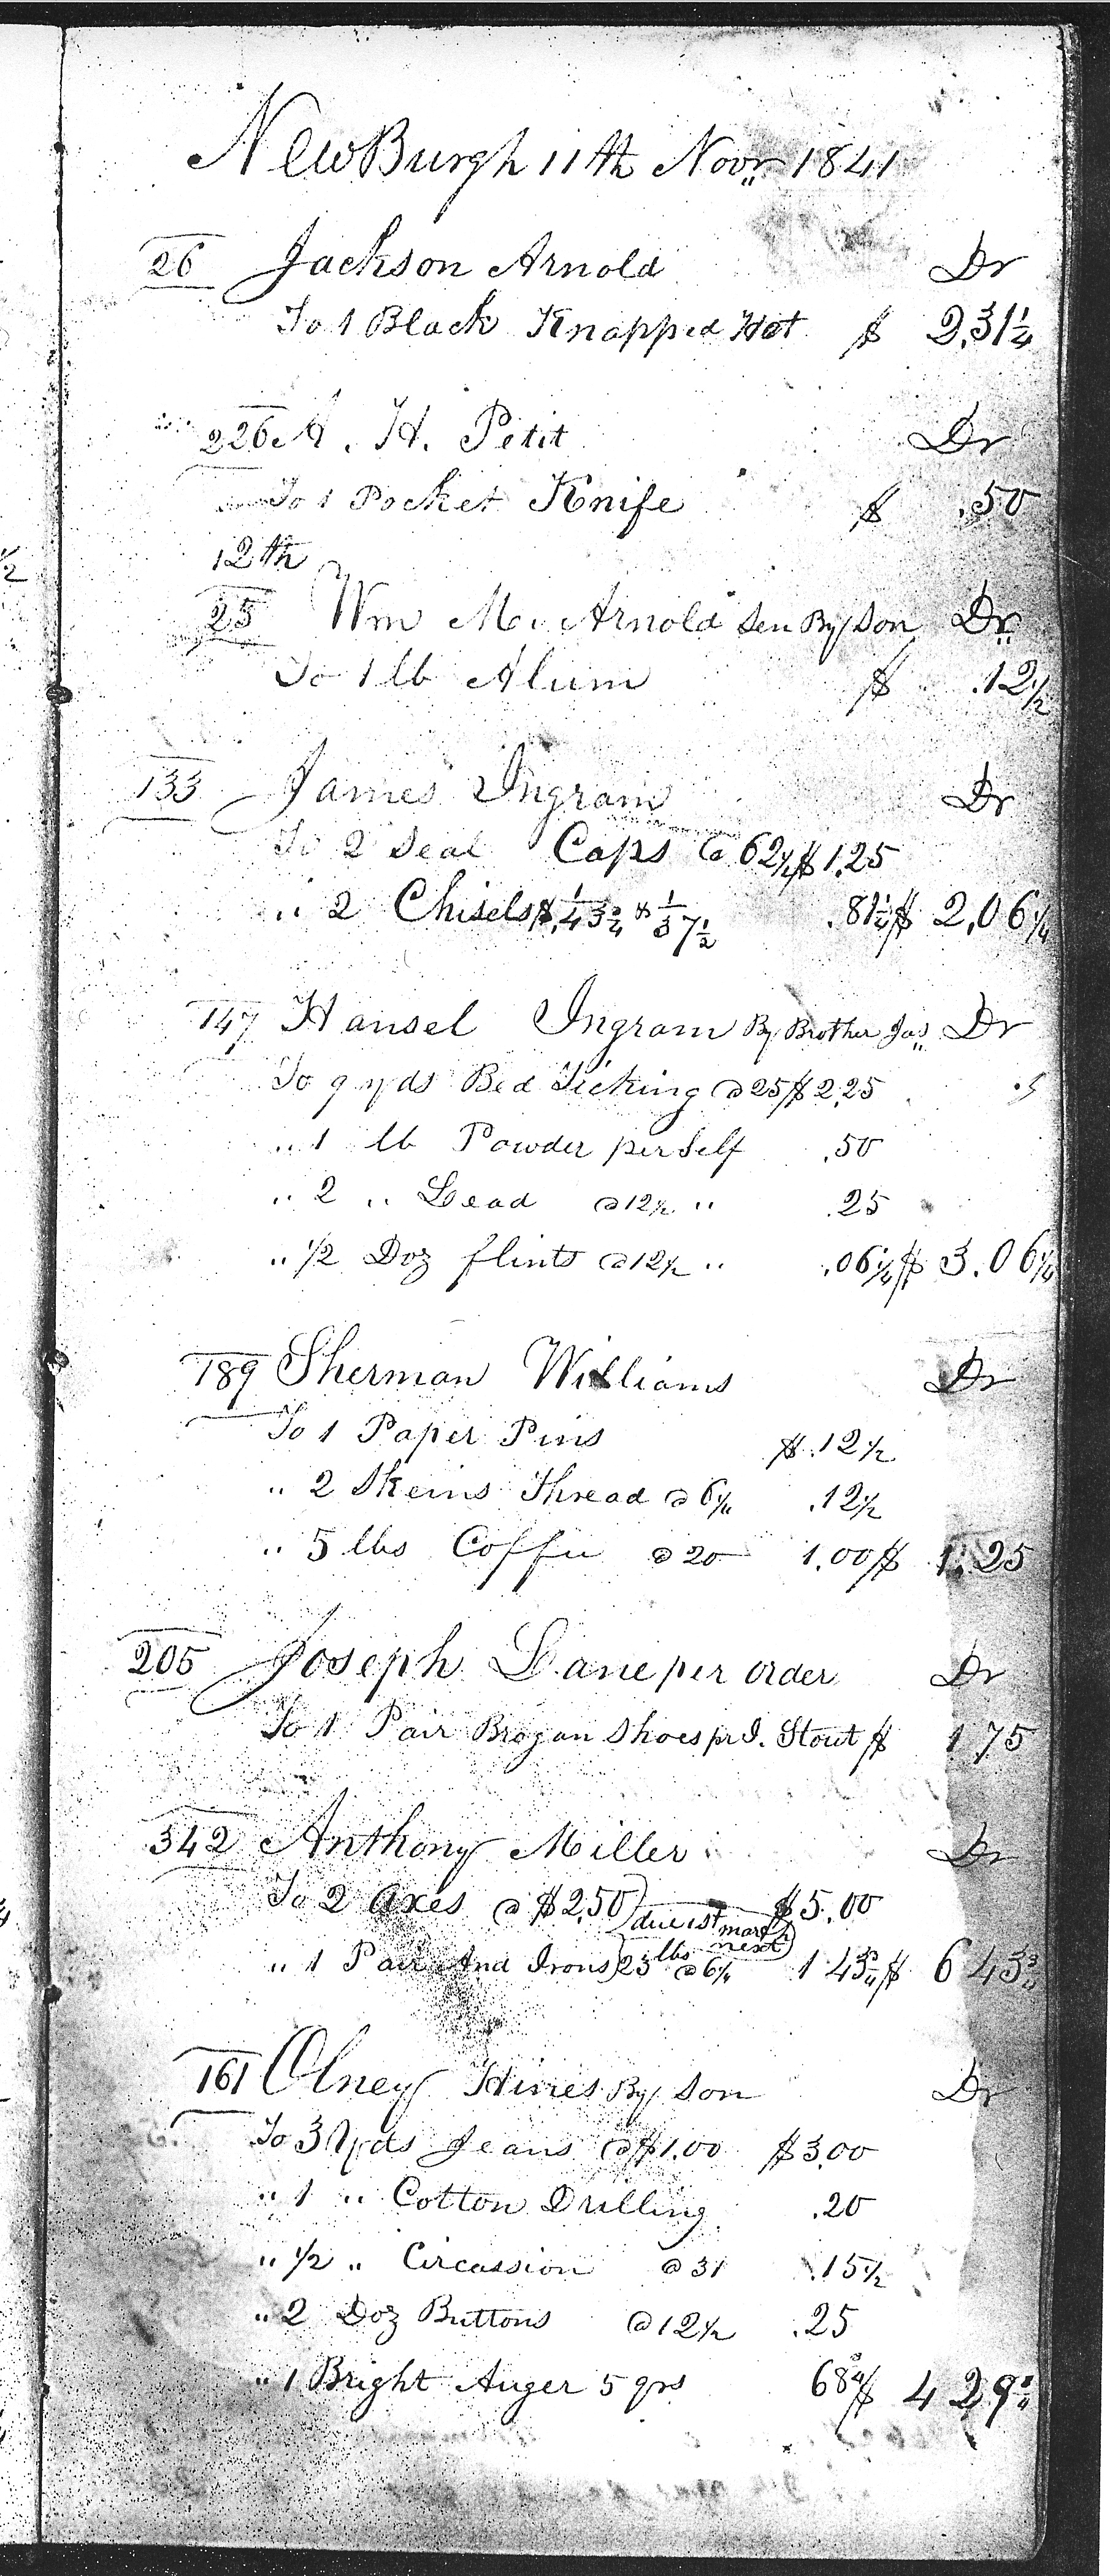 NewBurgh 11th Novr 1841
26 Jackson Arnold Dr
To 1 Black Knapped Hat $ 2,31¼
226 A. H. Petit Dr
To 1 Pocket Knife $ .50
12th
25 Wm M. Arnold Sen By Son Dr
To 1 lb Alum $ .12½
133 James Ingram Dr
To 2 Seal Caps @ 62½ $ 1,25
" 2 Chisels $ 1/.43¾ & 1/37½ .81¼ $ 2,06¼
147 Hansel Ingram By Brother Jas Dr
To 9 yds Bed Ticking @ 25 $ 2,25
" 1 lb Powder per Self .50
" 2 " Lead @ 12½ " .25
" ½ Doz flints @ 12½ " .06¼ $ 3.06¼
189 Sherman Williams Dr
To 1 Paper Pins $ .12½
" 2 Skeins Thread @ 6¼ .12½
" 5 lbs Coffee @ 20 1.00 $ 1.25
205 Joseph Lane per order Dr
To 1 Pair Brogan Shoes pr I. Stout $ 1 75
342 Anthony Miller Dr
To 2 axes @ $2,50 $5.00
due 1st march next
" 1 Pair And Irons 23 lbs @ 6¼ 1 43¾ $ 6 43¾
161 Olney Hines By Son Dr
To 3 Yds Jeans @ $1.00 $3.00
" 1 " Cotton Drilling .20
" ½ " Circassion @ 31 .15½
" 2 Doz Buttons @ 12½ .25
" 1 Bright Auger 5 qrs 68¾ $ 4 29¼